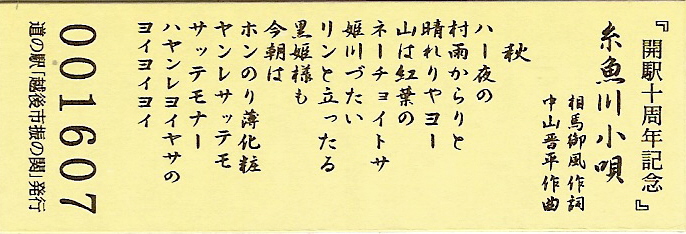 『開駅十周年記念』
糸魚川小唄
相馬御風作詞
中山晋平作曲
秋
ハー夜の
村雨からりと
晴れりやヨー
山は紅葉の
ネーチョイトサ
姫川づたい
リンと立ったる
黒姫様も
今朝は
ホンのり薄化粧
ヤンレサッテモ
サッテモナー
ハヤンレヨイヤサの
ヨイヨイヨイ
001607
道の駅「越後市振の関」発行